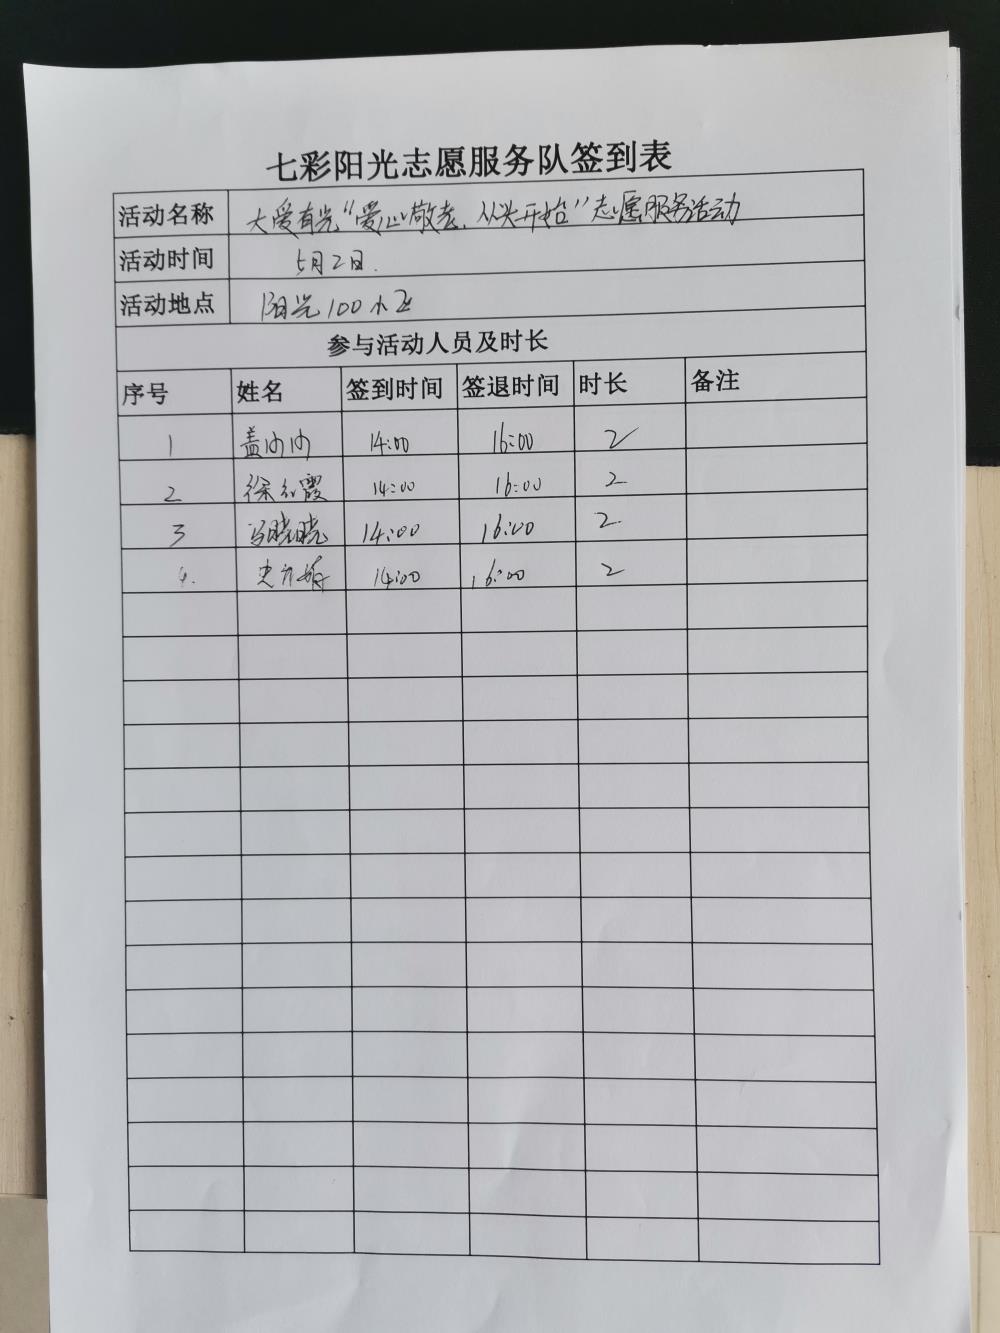 七彩阳光志愿服务队签到表
活动名称 大爱有光“爱心敬老、从头开始”志愿服务活动
活动时间 5月2日.
活动地点 阳光100小区
参与活动人员及时长
序号 姓名 签到时间 签退时间 时长 备注
1 盖内内 14:00 16:00 2
2 徐红霞 14:00 16:00 2
3 冯晓晓 14:00 16:00 2
4. 史 14:00 16:00 2